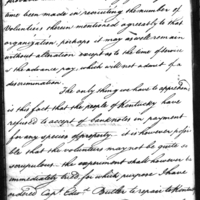 has been made in recruiting the number of
Volunteers therein mentioned agreeably to that
organization perhaps it may as well remain
without alteration except as to the time of service
& the advance pay, which will not admit of a
discrimination.
The only thing we have to apprehend
is this fact that the people of Kentucky have
refused to accept of banknotes in payment
for any species of property. it is however possi-
ble that the volunteers may not be quite so
scrupulous. the experiment shall however be
immediately tried for which purpose I have
ordered Capt Edwd Butler to repair to Kentucky